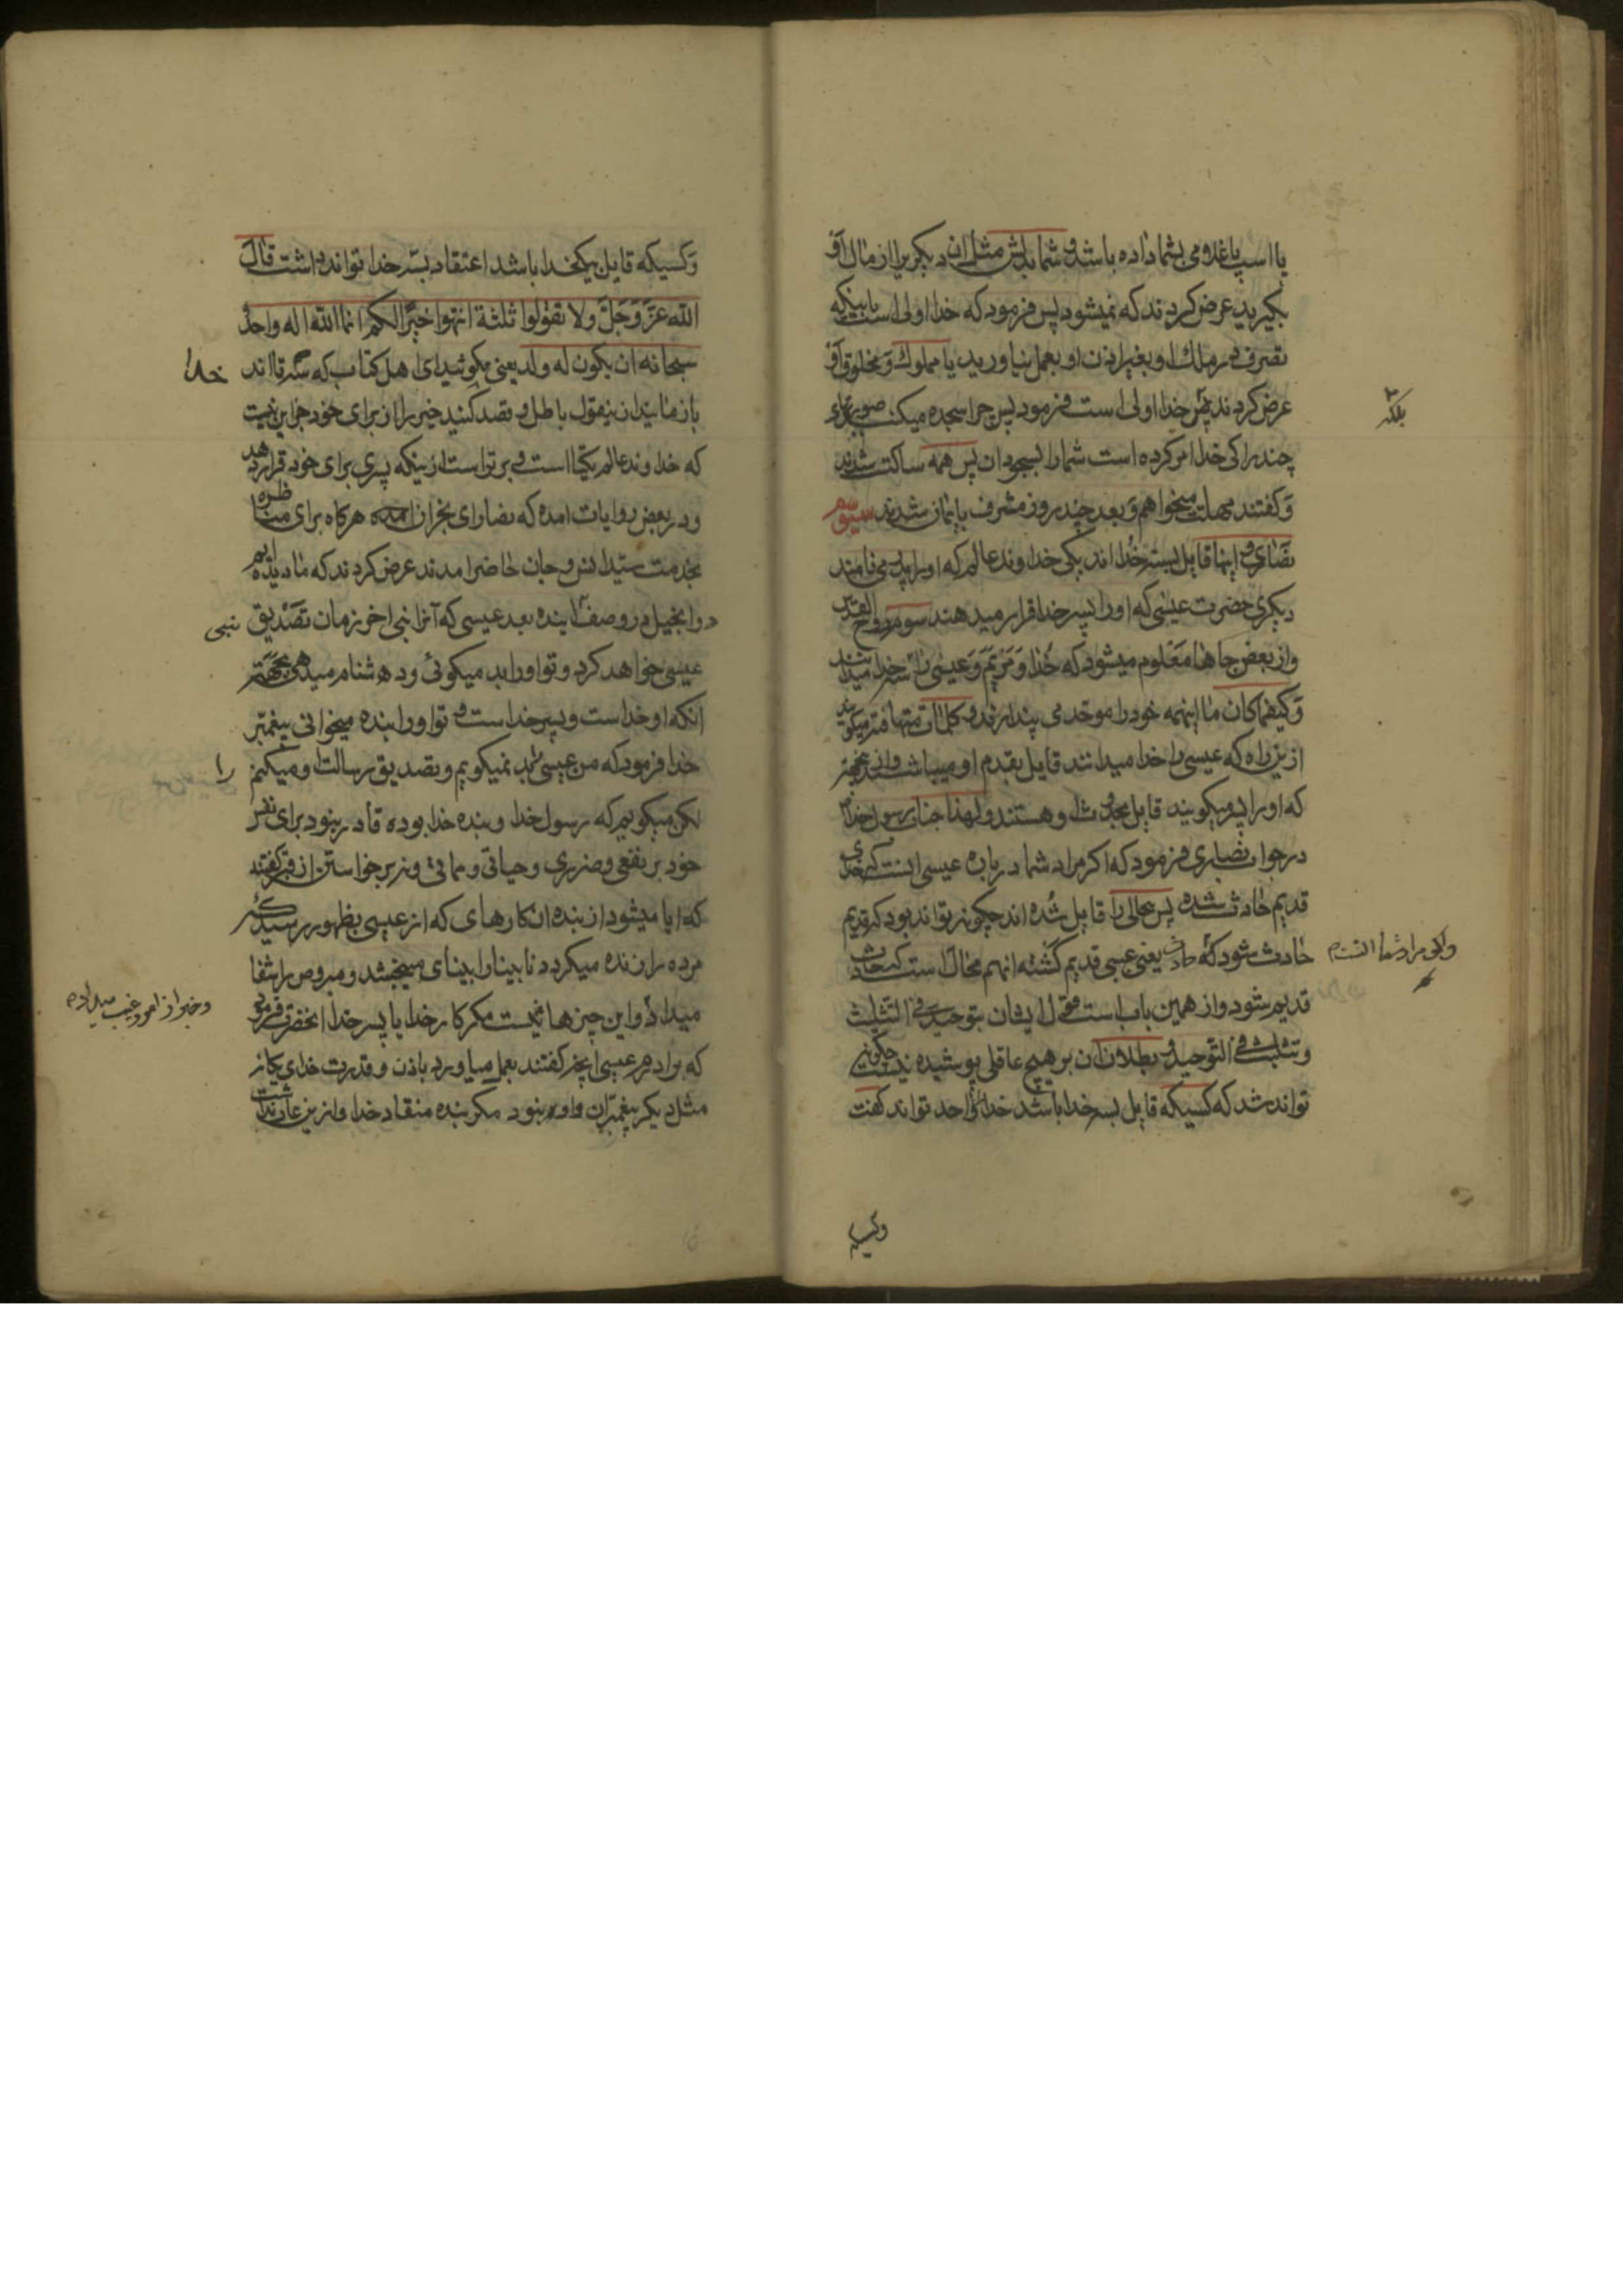 یا اسب یا غلامی بشما داده باشد و شما بدلش مثل ان دیکریرا از مال او
بکیرید عرض کردند که نمیشود پس فرمود که خدا اولی است باینکه
تصرف در ملک او بغیر اذن او بعمل نیاورید یا مملوک و مخلوق او
عرض کردند پس خدا اولی است فرمود پس چرا سجده میکنید صورتهای
بلکه
چند را کی خدا امر کرده است شما را بسجود ان پس همه ساکت شدند
و کفتند مهلت میخواهم و بعد چند روز مشرف بایمان شدند سیوم
نصاری و اینها قایل بسه خدا اند یکی خداوند عالم که او را پدر می نامند
دیکری حضرت عیسی که او را پسر خدا قرار میدهند سوم روح القدس
و از بعض جاها معلوم میشود که خدا و مریم و عیسی را سه خدا میدانند
و کیفما کان با اینهمه خود را موحد می پندارند و کلمات متهافته میکویند
ازین راه که عیسی را خدا میدانند قایل بقدم او میباشند و ازین جهة
که او را پسر میکویند قایل بحدوث او هستند و لهذا جناب رسول خدا
در جواب نصاری فرمود که اکر مراد شما درباره عیسی اینست که خدای
قدیم حادث شده پس محالی را قایل شده اند چکونه تواند بود که قدیم
حادث شود و اکر مراد شما اینست که حادث یعنی عیسی قدیم کشته انهم محال است که حادث
قدیم شود و از همین باب است قول ایشان بتوحید فی التثلیث
و تثلیث فی التوحید و بطلان ان بر هیچ عاقلی پوشیده نیست چکونه
تواند شد که کسیکه قایل بسه خدا باشد خدا را واحد تواند کفت
وکسیکه
وکسیکه قایل بیکخدا باشد اعتقاد بسه خدا تواند داشت قال
الله عز و جل و لا تقولوا ثلثة انتهوا خیرا لکم انما الله اله واحد
سبحانه ان یکون له ولد یعنی مکوئید ای اهل کتاب که سه تا اند خدا
باز مانید ازین قول باطل و قصد کنید خیر را از برای خود جز این نیست
که خداوند عالم یکتا است و برتر است ازینکه پسری برای خود قرار دهد
و در بعض روایات امده که نصارای نجران هرکاه برای مناظره
بخدمت سید انس و جان حاضر امدند عرض کردند که ما دیده ایم
در انجیل در وصف اینده بعد عیسی که آنرا نبی اخر زمان تصدیق نبی
عیسی خواهد کرد و تو او را بد میکوئی و دشنام میدهی بجهة
انکه او خدا است و پسر خدا است و تو او را بنده میخوانی پیغمبر
خدا فرمود که من عیسی را بد نمیکویم و تصدیق رسالت او میکنم
لکن میکویم که رسول خدا و بنده خدا بوده قادر نبود برای نفس
خود بر نفعی و ضرری و حیاتی و مماتی و نه برخواستن از قبر کفتند
که ایا میشود از بنده ان کارهای که از عیسی بظهور رسید که
مرده را زنده میکرد نابینا را بینای میبخشد و مبروص را شفا
میداد و خبر از امور غیب میداده و این چیزها نیست مکر کار خدا یا پسر خدا انحضرت فرمود
که برادرم عیسی انچه کفتند بعمل میاورد باذن و قدرت خدای یکانه
مثل دیکر پیغمبران و او نبود مکر بنده منقاد خدا و ازین عار نداشت